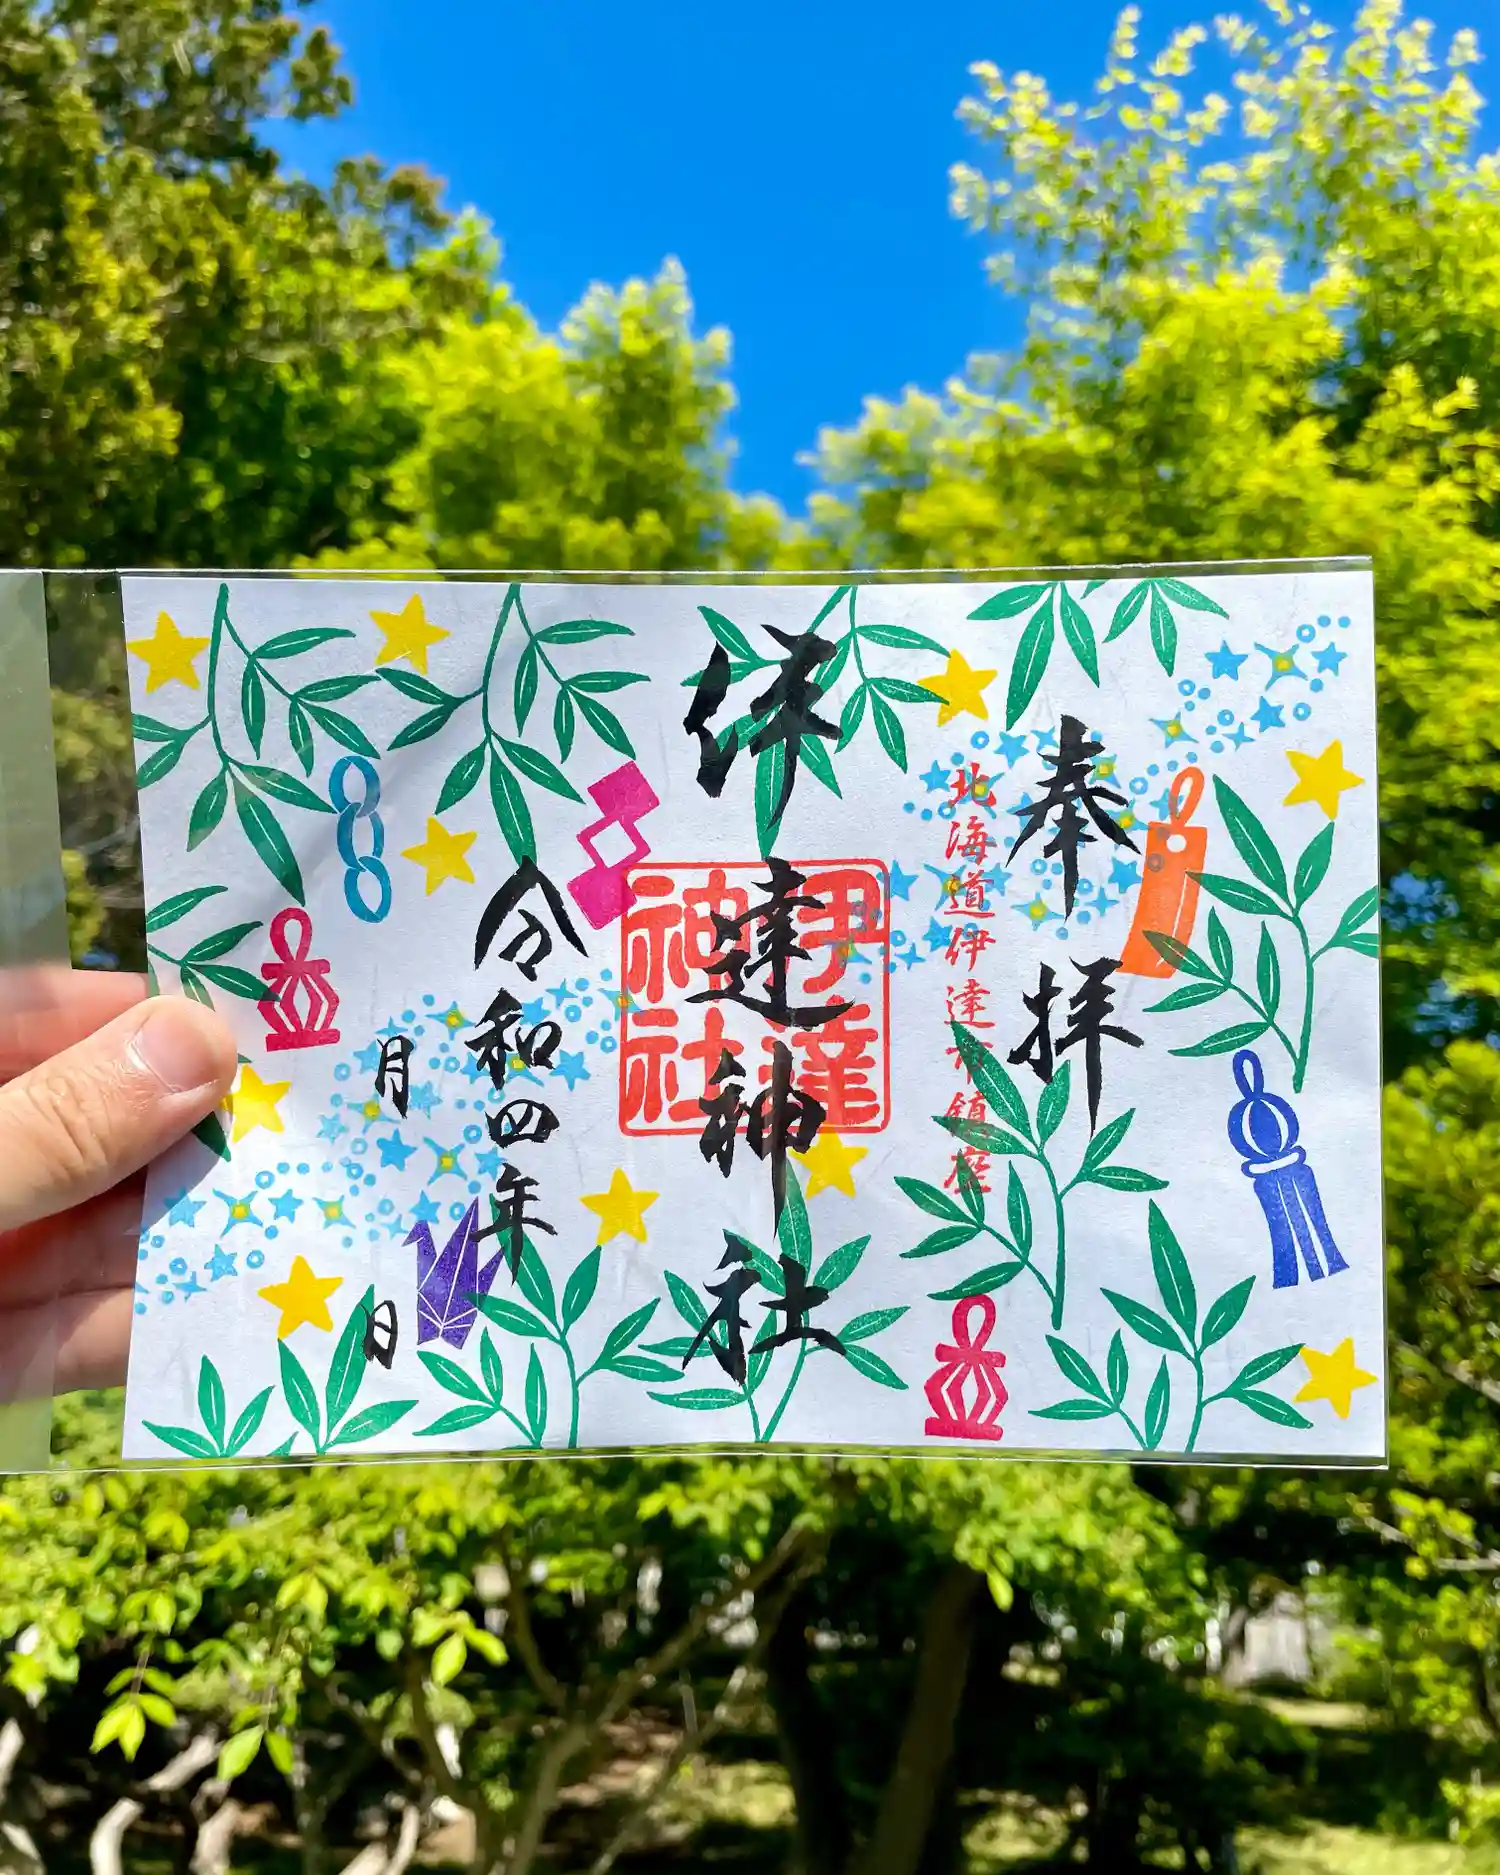 奉拝
北海道伊達市鎮座
伊達神社
伊達神社
令和四年
月
日